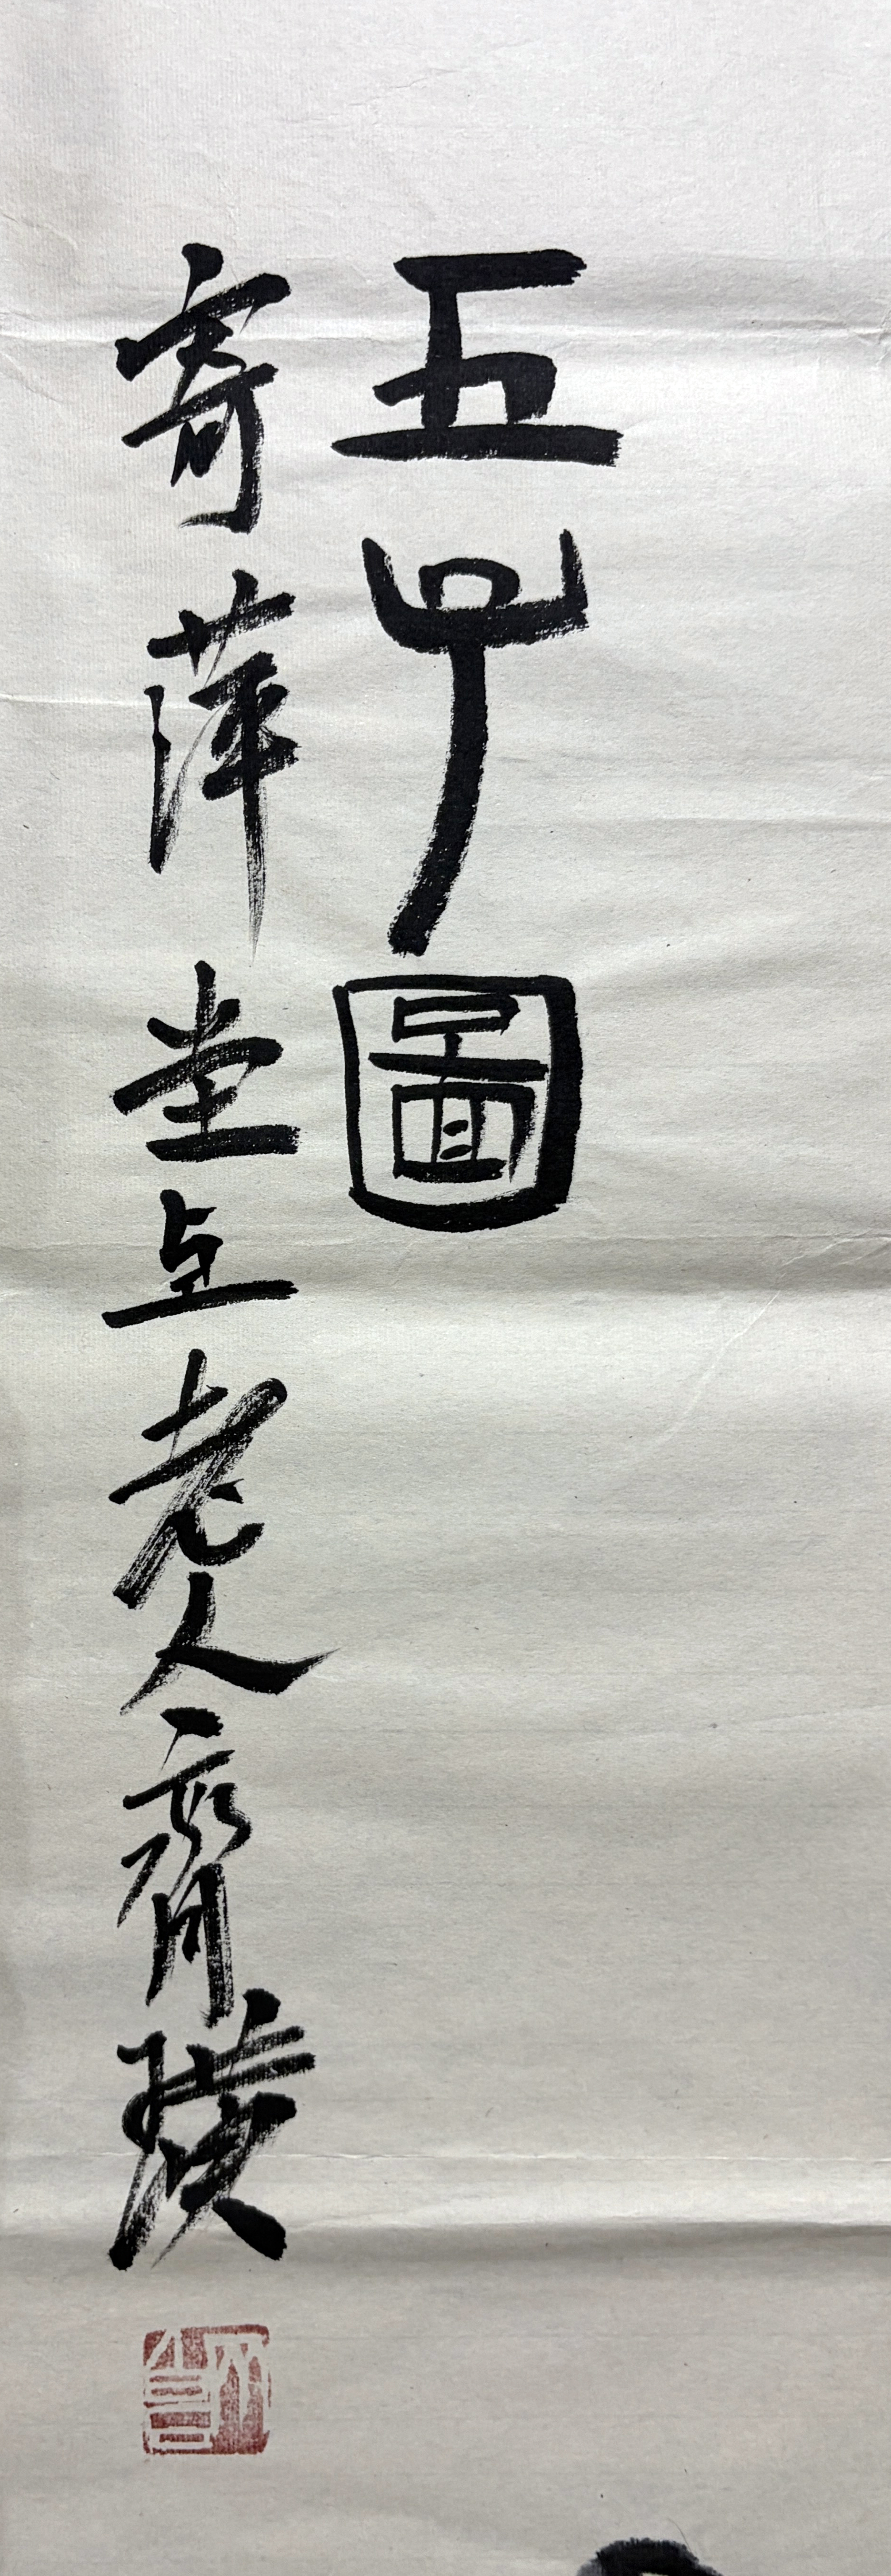 五子圖
寄萍堂上老人齊璜